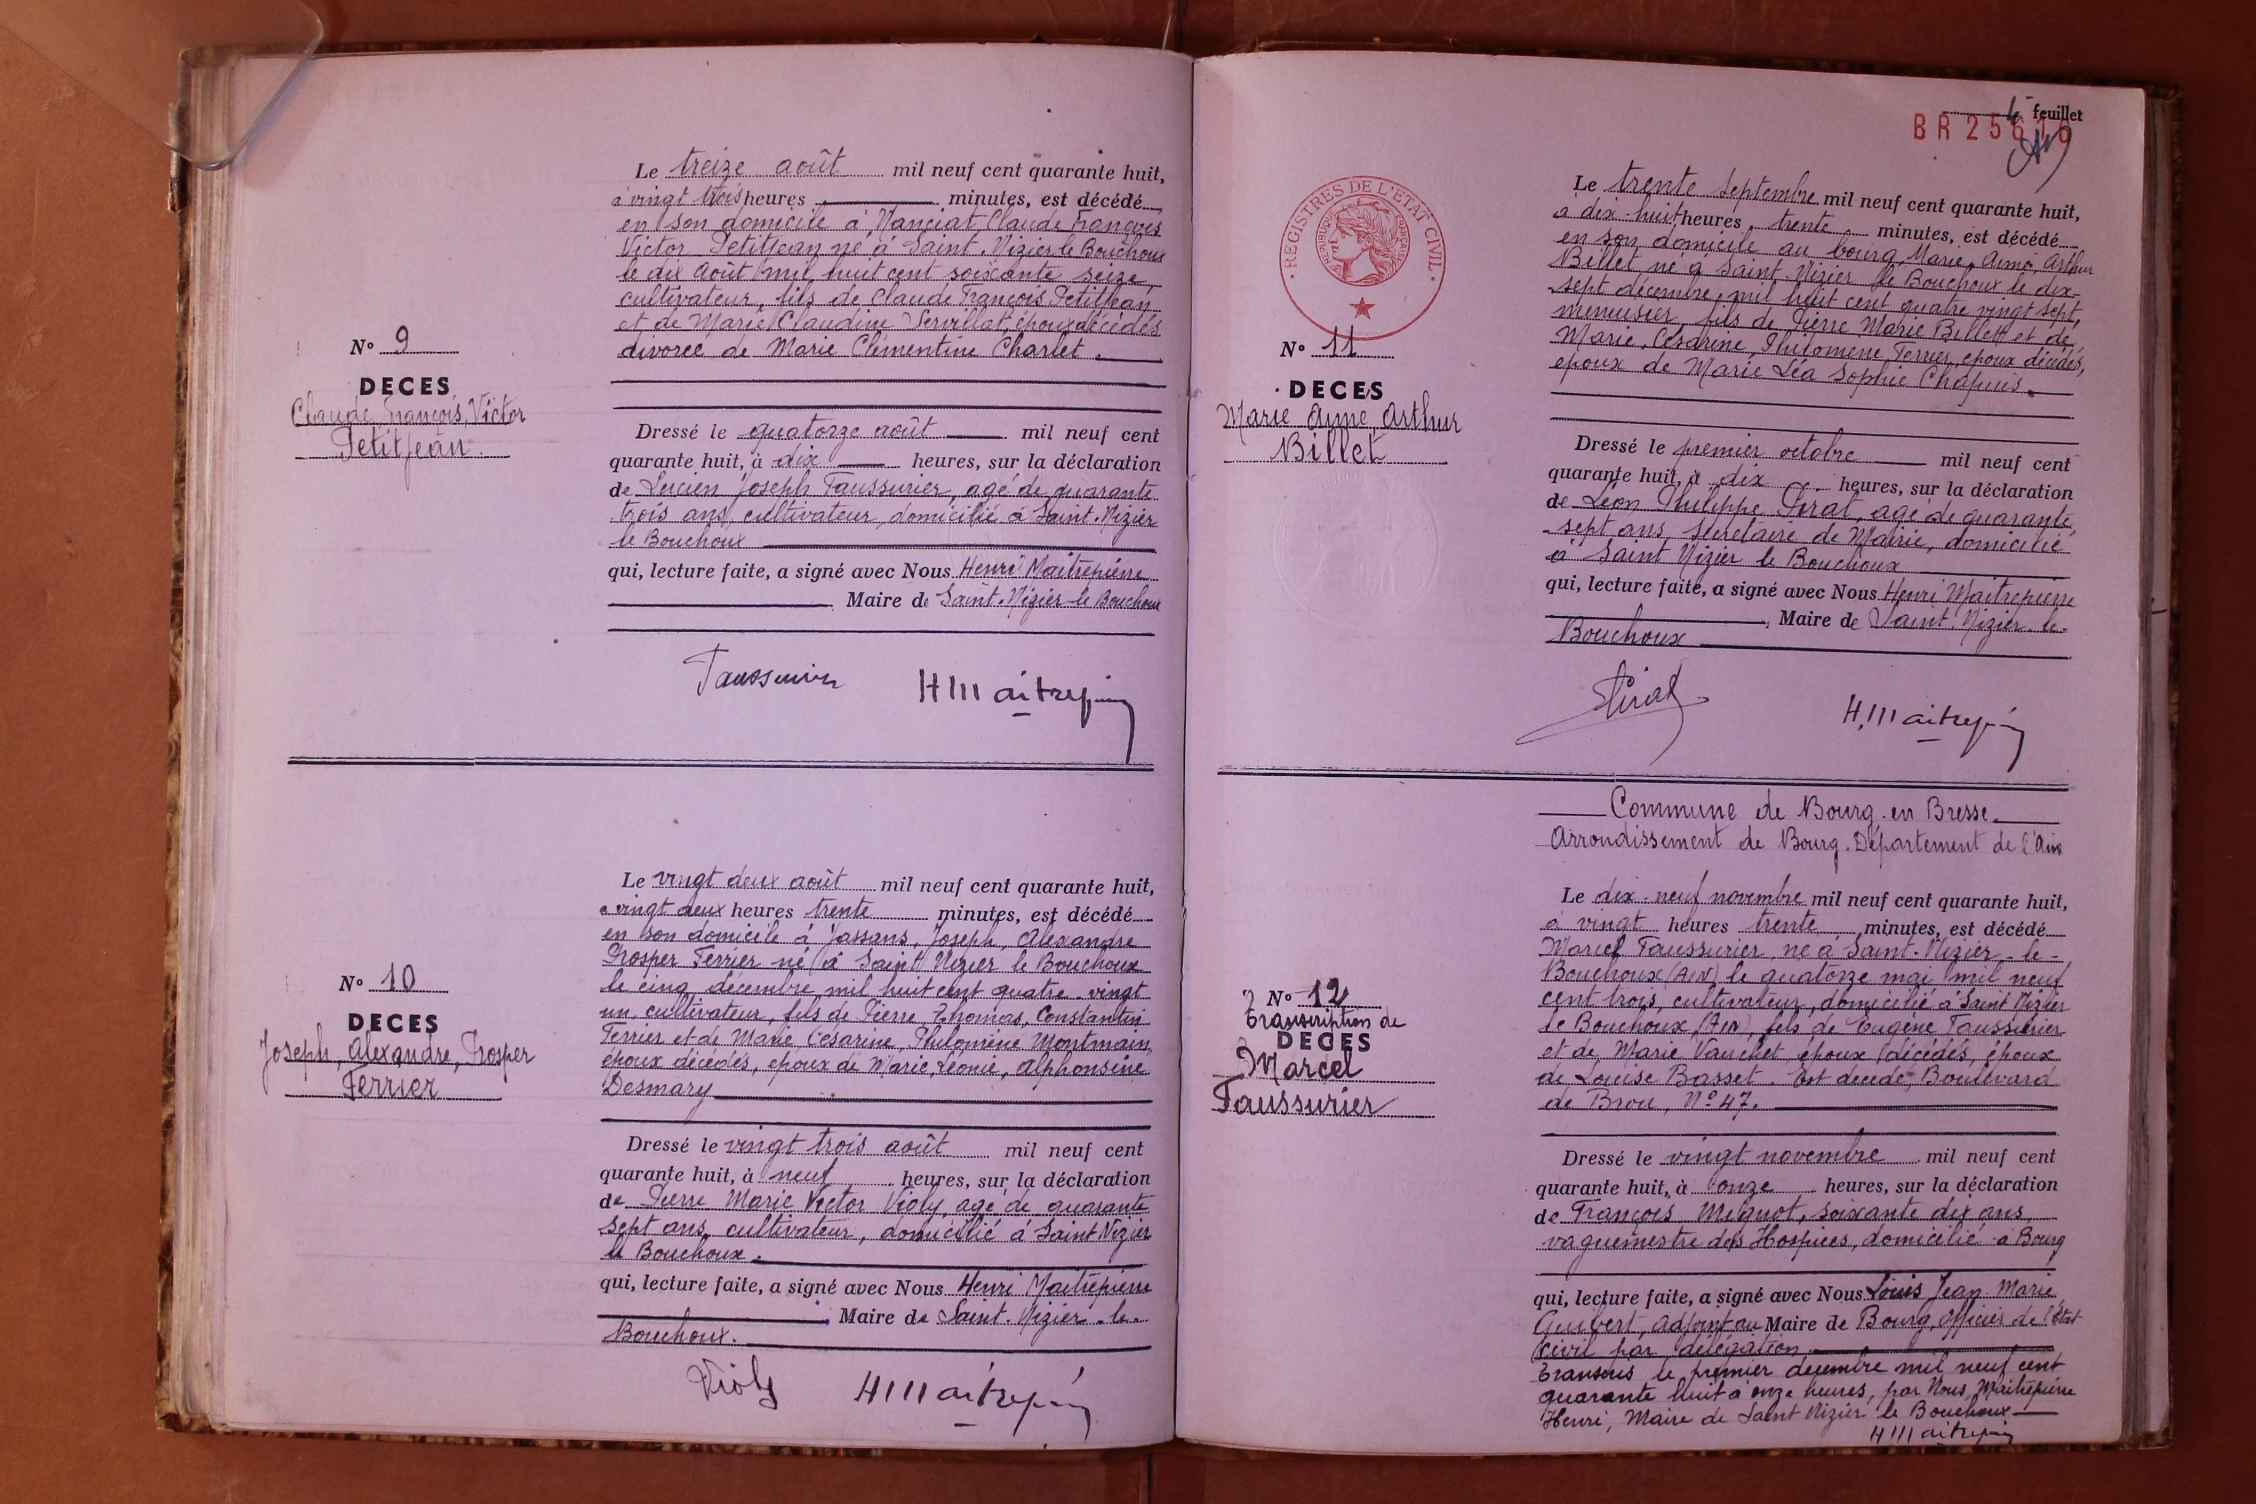 Le treize août mil neuf cent quarante huit,
à vingt trois heures minutes, est décédé
en son domicile à Manciat Claude François
Victor Petitjean né à Saint-Nizier le Bouchoux
le dix Août mil huit cent soixante seize,
cultivateur, fils de Claude François Petitjean
et de Marie Claudine Servillat, époux décédés
divorcé de Marie Clémentine Charlet.
N° 9
DECES
Claude, François, Victor
Petitjean
Dressé le quatorze août mil neuf cent
quarante huit, à dix heures, sur la déclaration
de Lucien Joseph Faussurier, agé de quarante
trois ans, cultivateur, domicilié à Saint-Nizier
le Bouchoux
qui, lecture faite, a signé avec Nous Henri Maitrepierre
Maire de Saint-Nizier le Bouchoux
Faussurier HMaitrepierre
Le vingt deux août mil neuf cent quarante huit,
à vingt deux heures trente minutes, est décédé
en son domicile à Jassans, Joseph, Alexandre
Prosper Ferrier né à Saint Nizier le Bouchoux
le cinq décembre mil huit cent quatre-vingt
un, cultivateur, fils de Pierre, Thomas, Constantin
Ferrier et de Marie, Césarine, Philomène Montmain,
époux décédés, époux de Marie, Léonie, Alphonsine
Desmary
N° 10
DECES
Joseph, Alexandre, Prosper
Ferrier
Dressé le vingt trois août mil neuf cent
quarante huit, à neuf heures, sur la déclaration
de Pierre Marie Victor Violy, agé de quarante
sept ans, cultivateur, domicilié à Saint Nizier
le Bouchoux.
qui, lecture faite, a signé avec Nous Henri Maitrepierre
Maire de Saint-Nizier-le-
Bouchoux.
Violy HMaitrepierre
4 feuillet
BR 25616
Le trente septembre mil neuf cent quarante huit,
à dix-huit heures, trente minutes, est décédé
en son domicile au bourg, Marie, Aimé, Arthur
Billet, né à Saint-Nizier le Bouchoux le dix-
sept décembre mil huit cent quatre vingt sept,
menuisier, fils de Pierre Marie Billet et de
Marie, Césarine, Philomène, Ferrier, époux décédés,
époux de Marie Léa Sophie Chapuis.
REGISTRES DE L'ETAT CIVIL
REPUBLIQUE FRANÇAISE
N° 11
DECES
Marie Aimé, Arthur
Billet
Dressé le premier octobre mil neuf cent
quarante huit, à dix heures, sur la déclaration
de Léon Philippe Pirat, agé de quarante
sept ans, secrétaire de Mairie, domicilié
à Saint Nizier le Bouchoux
qui, lecture faite, a signé avec Nous Henri Maitrepierre
Maire de Saint-Nizier-le-
Bouchoux
Pirat H.Maitrepierre
Commune de Bourg-en Bresse
Arrondissement de Bourg. Département de l'Ain
Le dix-neuf novembre mil neuf cent quarante huit,
à vingt heures trente minutes, est décédé
Marcel Faussurier, né à Saint-Nizier-le-
Bouchoux (Ain) le quatorze mai mil neuf
cent trois, cultivateur, domicilié à Saint Nizier
le Bouchoux (Ain), fils de Eugène Faussurier
et de Marie Vauchet, époux décédés, époux
de Louise Basset. Est décédé, Boulevard
de Brou, N° 47.
N° 12
Transcription de
DECES
Marcel
Faussurier
Dressé le vingt novembre mil neuf cent
quarante huit, à onze heures, sur la déclaration
de François Mignot, soixante dix ans,
vaguemestre des Hospices, domicilié à Bourg
qui, lecture faite, a signé avec Nous Louis Jean Marie
Guibert, adjoint au Maire de Bourg, Officier de l'Etat-
civil par délégation.
Transcris le premier décembre mil neuf cent
quarante huit à onze heures, par Nous, Maitrepierre
Henri, Maire de Saint Nizier le Bouchoux
HMaitrepierre